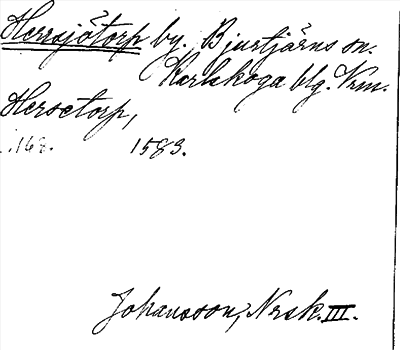 Herrsjötorp by. Bjurtjärns sn.
Karlskoga blg. Vrm.
Hersetorp,
.168. 1583.
Johansson, Nrsk. III.